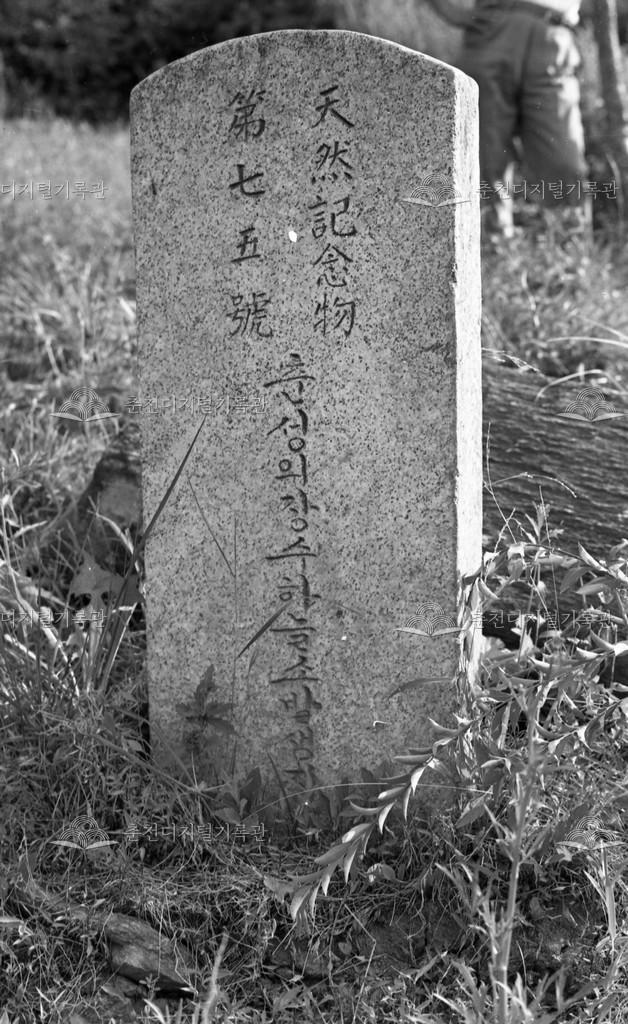 天然記念物
第七五號
춘성의장수하늘소발생지
춘천디지털기록관
춘천디지털기록관
춘천디지털기록관
춘천디지털기록관
춘천디지털기록관
춘천디지털기록관